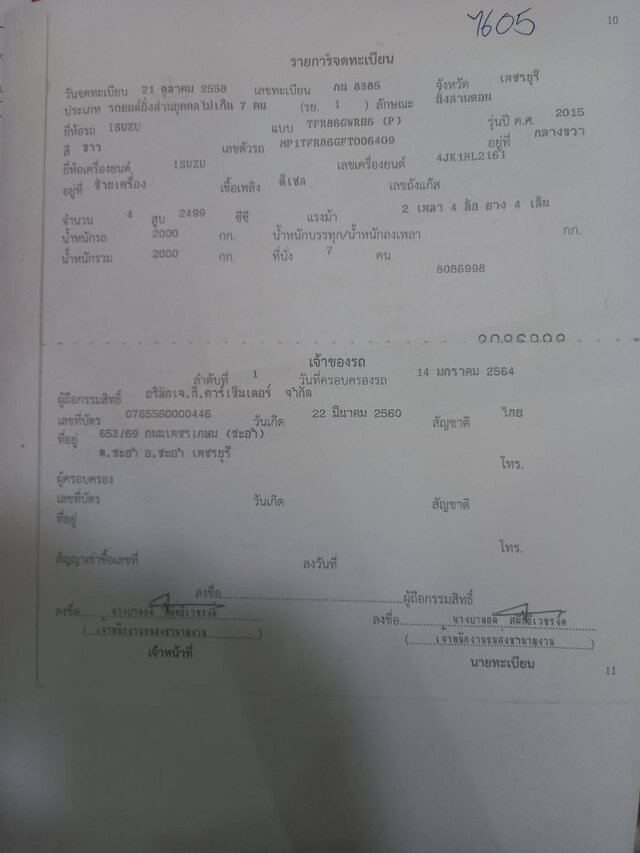 7605
10
รายการจดทะเบียน
วันจดทะเบียน 21 ตุลาคม 2558 เลขทะเบียน กน 8385 จังหวัด เพชรบุรี
ประเภท รถยนต์นั่งส่วนบุคคลไม่เกิน 7 คน (รย. 1 ) ลักษณะ นั่งสามตอน
ยี่ห้อรถ ISUZU แบบ TFR86GWRB6 (P) รุ่นปี ค.ศ. 2015
สี ขาว เลขตัวรถ MP1TFR86GFT006409 อยู่ที่ กลางขวา
ยี่ห้อเครื่องยนต์ ISUZU เลขเครื่องยนต์ 4JK1NL2161
อยู่ที่ ซ้ายเครื่อง เชื้อเพลิง ดีเซล เลขถังแก๊ส
จำนวน 4 สูบ 2499 ซีซี แรงม้า 2 เพลา 4 ล้อ ยาง 4 เส้น
น้ำหนักรถ 2000 กก. น้ำหนักบรรทุก/น้ำหนักลงเพลา กก.
น้ำหนักรวม 2000 กก. ที่นั่ง 7 คน
8086998
เจ้าของรถ
ลำดับที่ 1 วันที่ครอบครองรถ 14 มกราคม 2564
ผู้ถือกรรมสิทธิ์ บริษัทเจ.ที.คาร์เซ็นเตอร์ จำกัด
เลขที่บัตร 0765560000446 วันเกิด 22 มีนาคม 2560 สัญชาติ ไทย
ที่อยู่ 853/69 ถนนเพชรเกษม (ชะอำ)
ต.ชะอำ อ.ชะอำ เพชรบุรี
โทร.
ผู้ครอบครอง
เลขที่บัตร วันเกิด สัญชาติ
ที่อยู่
โทร.
สัญญาเช่าซื้อเลขที่ ลงวันที่
ลงชื่อ ผู้ถือกรรมสิทธิ์
ลงชื่อ ลงชื่อ
(เจ้าพนักงานขนส่งชำนาญงาน) (เจ้าพนักงานขนส่งชำนาญงาน)
เจ้าหน้าที่ นายทะเบียน
11